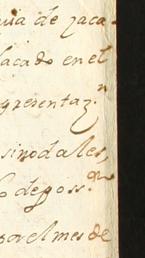 de zaca
sacado en el
presentaz.n
sinodales,
degoss.n
por el mes de